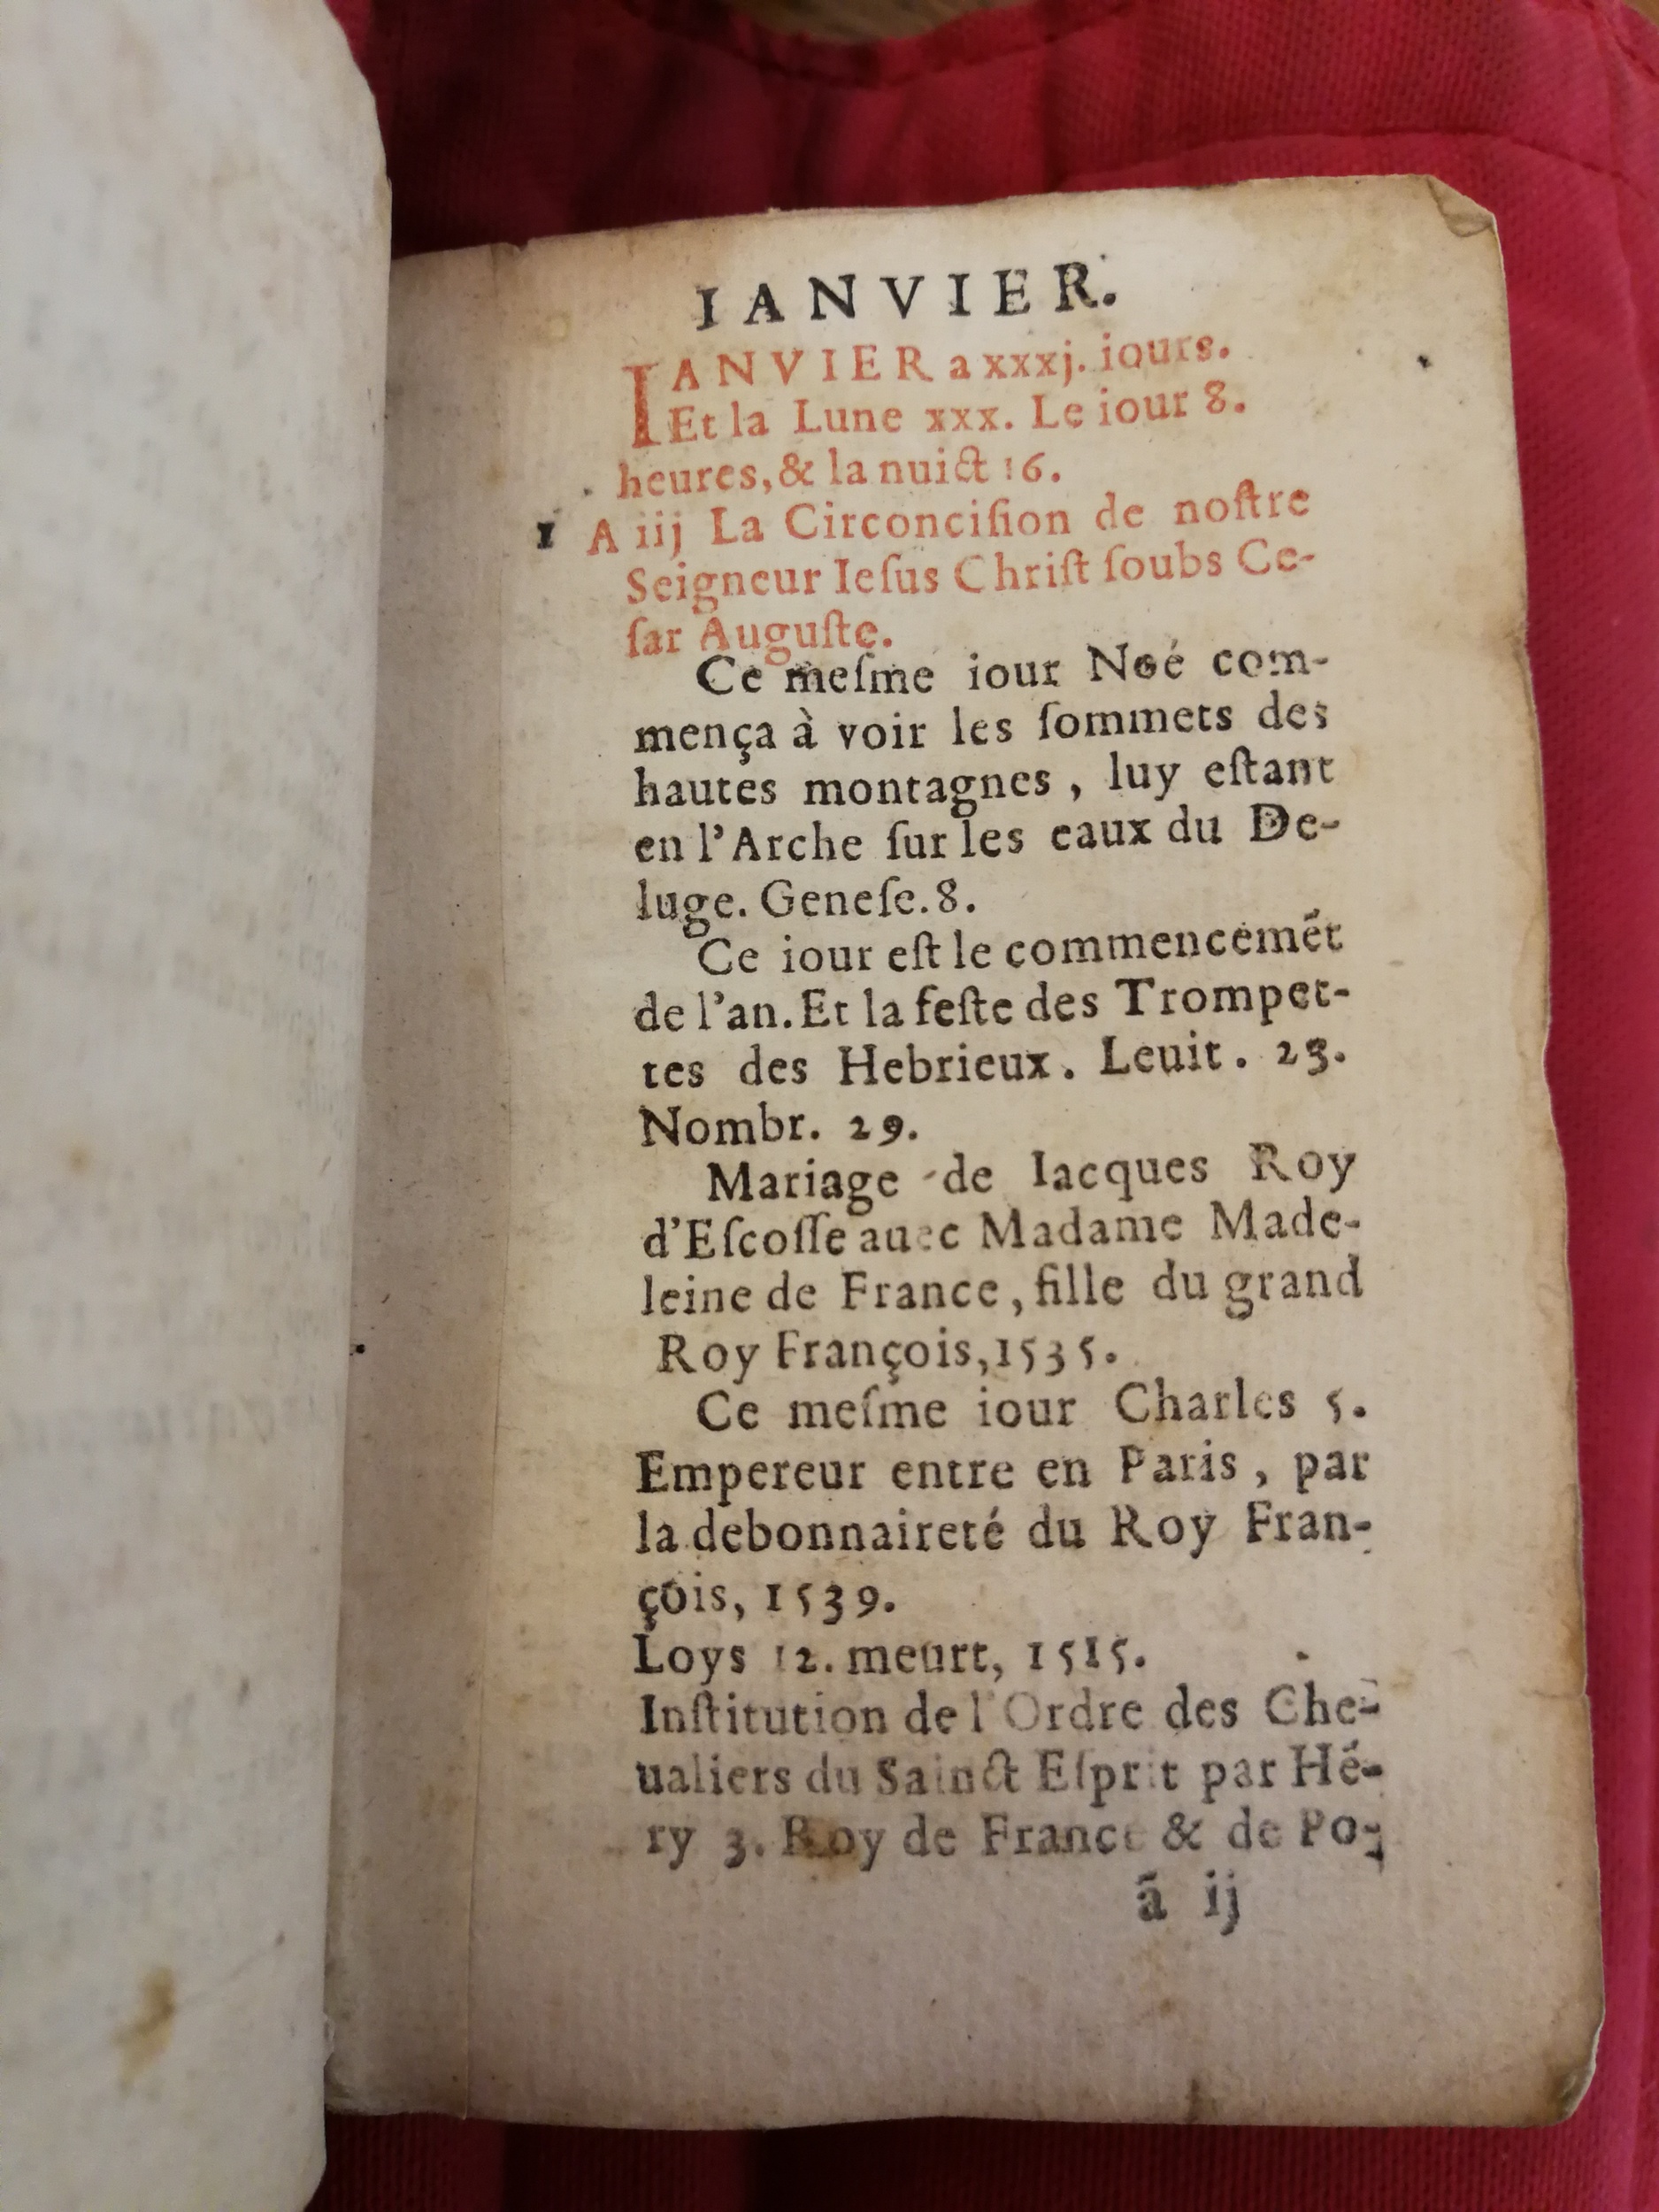 IANVIER.
IANVIER a xxxj. iours.
Et la Lune xxx. Le iour 8.
heures, & la nuict 16.
1 A iij La Circonciſion de noſtre
Seigneur Ieſus Chriſt ſoubs Ce-
ſar Auguſte.
Ce meſme iour Noé com-
mença à voir les ſommets des
hautes montagnes, luy eſtant
en l'Arche ſur les eaux du De-
luge. Geneſe. 8.
Ce iour eſt le commencemẽt
de l'an. Et la feſte des Trompet-
tes des Hebrieux. Leuit. 23.
Nombr. 29.
Mariage de Iacques Roy
d'Eſcoſſe auec Madame Made-
leine de France, fille du grand
Roy François, 1535.
Ce meſme iour Charles 5.
Empereur entre en Paris, par
la debonnaireté du Roy Fran-
çois, 1539.
Loys 12. meurt, 1515.
Inſtitution de l'Ordre des Che-
ualiers du Sainct Eſprit par Hẽ-
ry 3. Roy de France & de Po-
ã ij